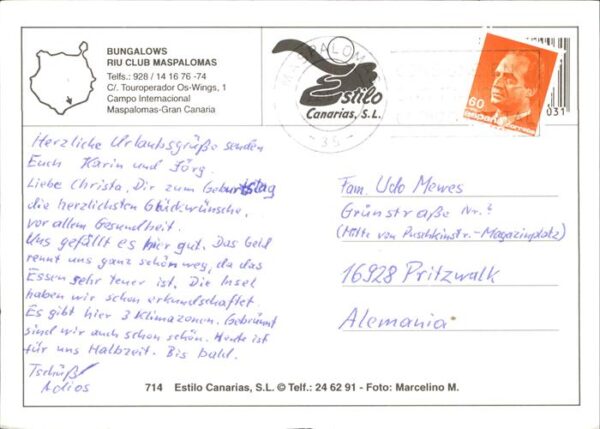 BUNGALOWS
RIU CLUB MASPALOMAS
Telfs.: 928 / 14 16 76 -74
C/. Touroperador Os-Wings, 1
Campo Internacional
Maspalomas-Gran Canaria
Estilo
Canarias, S.L.
MASPALOMAS
- 35 -
60
España correos
031
Herzliche Urlaubsgrüße senden
Euch Karin und Jörg.
Liebe Christa, Dir zum Geburtstag
die herzlichsten Glückwünsche,
vor allem Gesundheit.
Uns gefällt es hier gut. Das Geld
rennt uns ganz schön weg, da das
Essen sehr teuer ist. Die Insel
haben wir schon erkundschaftet.
Es gibt hier 3 Klimazonen. Gebräunt
sind wir auch schon schön. Heute ist
für uns Halbzeit. Bis bald.
Tschüß
Adios
Fam. Udo Mewes
Grünstraße Nr.
(Mitte von Puschkinstr.-Magazinplatz)
16928 Pritzwalk
Alemania
714 Estilo Canarias, S.L. © Telf.: 24 62 91 - Foto: Marcelino M.